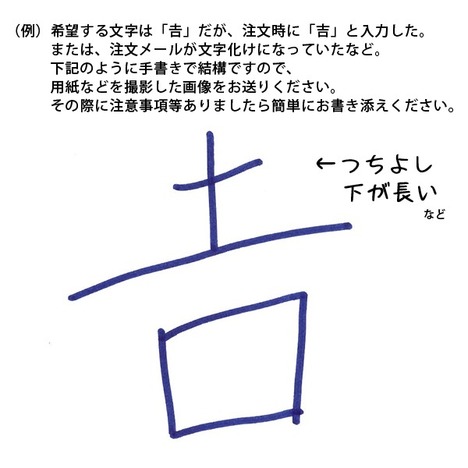 (例) 希望する文字は「𠮷」だが、注文時に「吉」と入力した。
または、注文メールが文字化けになっていたなど。
下記のように手書きで結構ですので、
用紙などを撮影した画像をお送りください。
その際に注意事項等ありましたら簡単にお書き添えください。
𠮷
←つちよし
下が長い
など